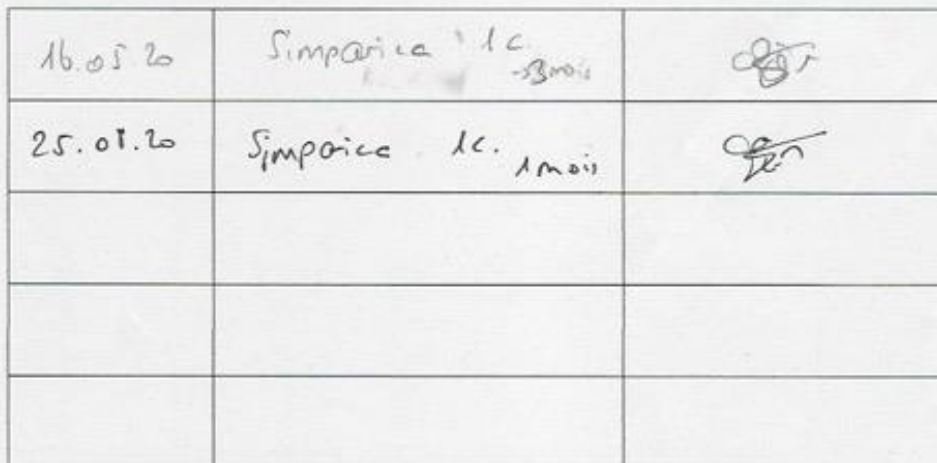 16.05.20 Simparica 1c.
3mois
25.08.20 Simparica 1c. 1mois